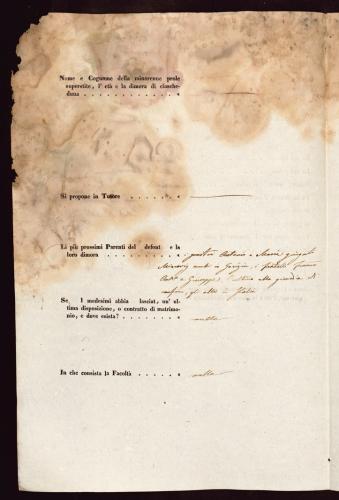 Nome e Cognome della minorenne prole
superstite, l' età e la dimora di ciasche-
duna . . . . . . . . . . . . . «
Si propone in Tutore . . . . . . «
Li più prossimi Parenti del defunt e la
loro dimora . . . . . . . . . . «
Antonio e Maria
fratelli
Giuseppe, alla guardia di
gli altri a
Se l medesimi abbia lasciat, un' ul-
tima disposizione, o contratto di matrimo-
nio, e dove esista? . . . . . . . « nulla
In che consista la Facoltà . . . . . « nulla